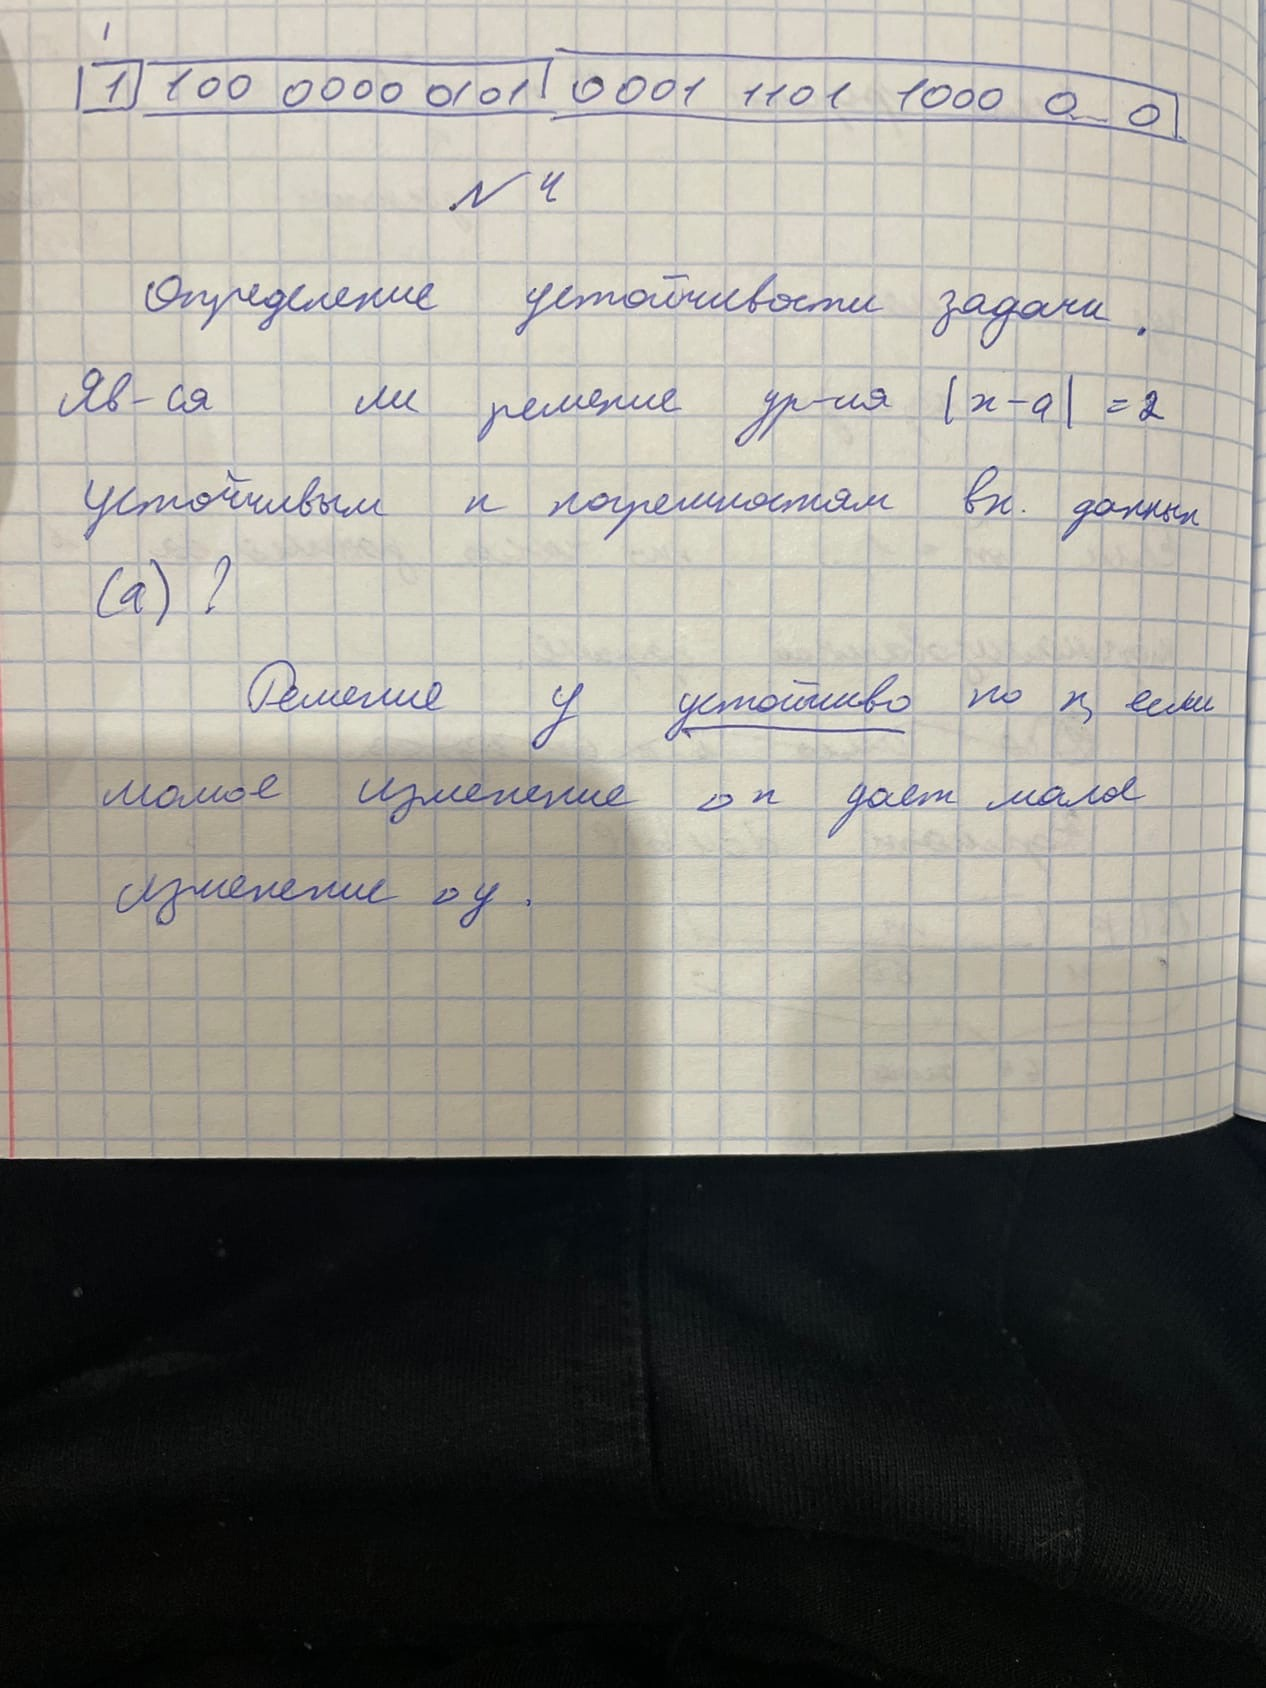 1
1 100 0000 0101 0001 1101 1000 0...0
N 4
Определение устойчивости задачи.
Яв-ся ли решение ур-ия |x-a| = 2
устойчивым к погрешностям вх. данных
(a) ?
Решение y устойчиво по x, если
малое изменение △x дает малое
изменение △y.